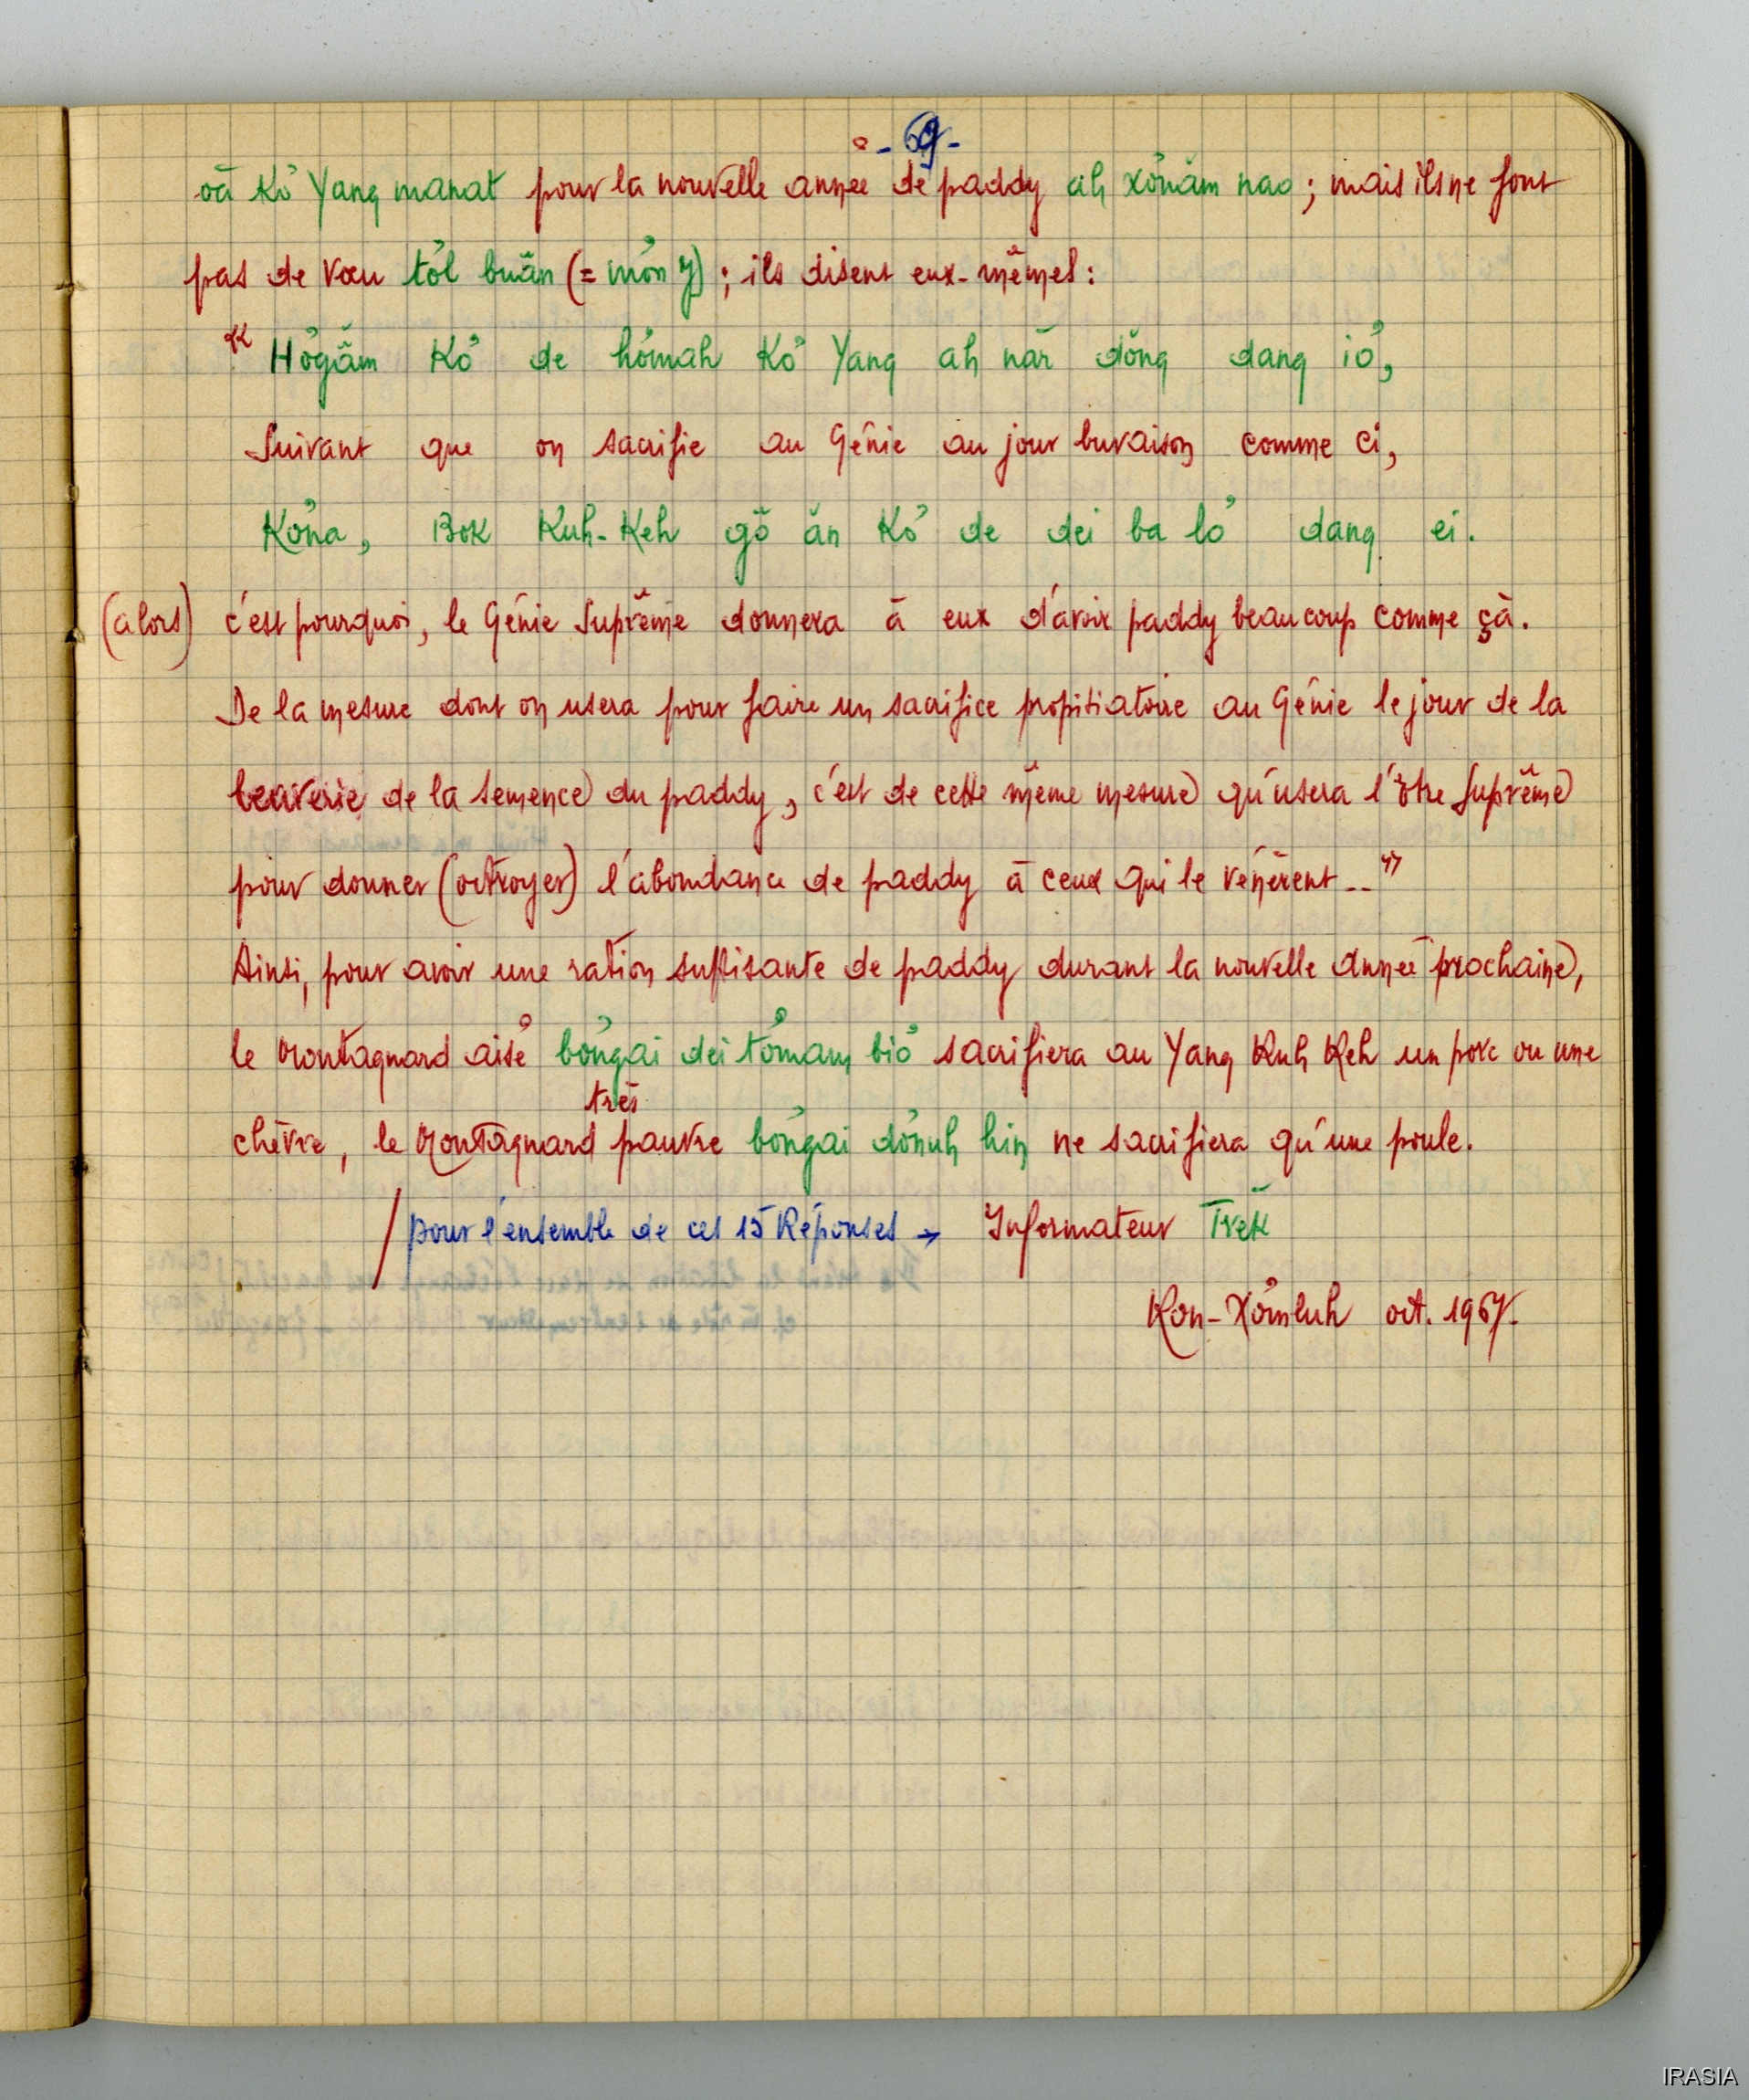 - 69 -
oă kơ Yang manat pour la nouvelle année de paddy ah xơnăm nao ; mais ils ne font
pas de vœu tơl buăn (= mơn y) ; ils disent eux-mêmes :
« Hơgăm kơ de hơmah kơ Yang ah năr dŏng dang iơ,
Suivant que on sacrifie au Génie au jour buvaison comme ci,
Kơna, Bok Kuh-Keh gŏ ăn kơ de dei ba lơ dang ei.
(alors) c'est pourquoi, le Génie Suprême donnera à eux d'avoir paddy beaucoup comme çà.
De la mesure dont on usera pour faire un sacrifice propitiatoire au Génie le jour de la
beuverie de la semence du paddy, c'est de cette même mesure qu'usera l'être Suprême
pour donner (octroyer) l'abondance de paddy à ceux qui le vénèrent .. »
Ainsi, pour avoir une ration suffisante de paddy durant la nouvelle année prochaine,
le Montagnard aisé bơngai dei tơmam biơ sacrifiera au Yang Kuh Keh un porc ou une
chèvre, le Montagnard très pauvre bơngai dơnuh hin ne sacrifiera qu'une poule.
/ pour l'ensemble de ces 15 Réponses → Informateur Trĕk
Kon-Xơmluh oct. 1967.
IRASIA